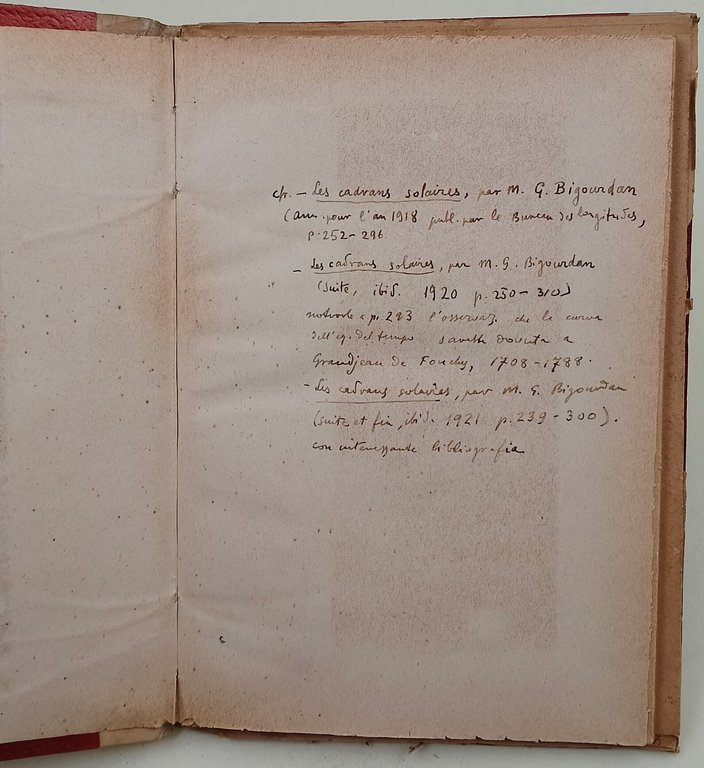 cfr. – Les cadrans solaires, par M. G. Bigourdan
(Ann. pour l'an 1918 publ. par le Bureau des longitudes,
p. 252–296.
– Les cadrans solaires, par M. G. Bigourdan
(suite, ibid. 1920 p. 250–310)
notevole a p. 293 l'osservaz. che la curva
dell'eq. del tempo sarebbe dovuta a
Grandjean de Fouchy, 1708–1788.
– Les cadrans solaires, par M. G. Bigourdan
(suite et fin, ibid. 1921 p. 239–300).
con interessante bibliografia